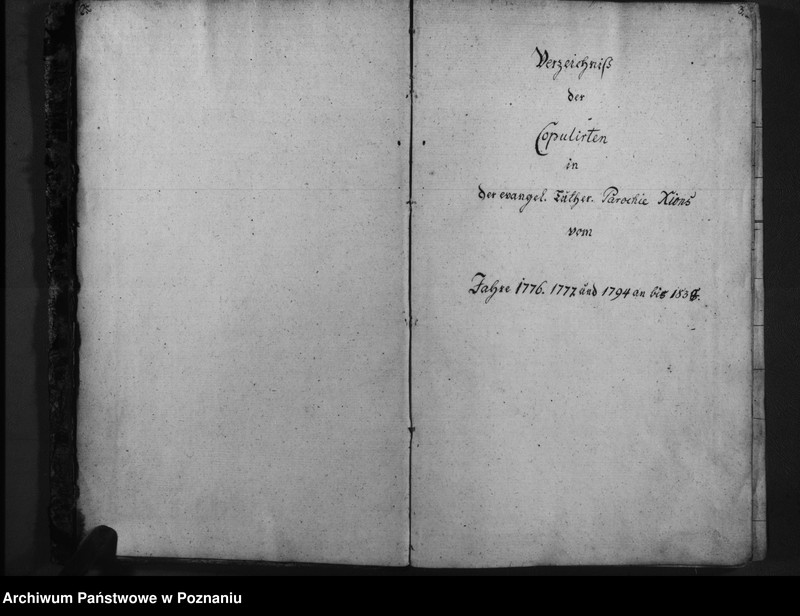 3.
Verzeichniß
der
Copulirten
in
der evangel. Luther. Parochie Xions
vom
Jahre 1776. 1777 und 1794 an bis 1838.
Archiwum Państwowe w Poznaniu